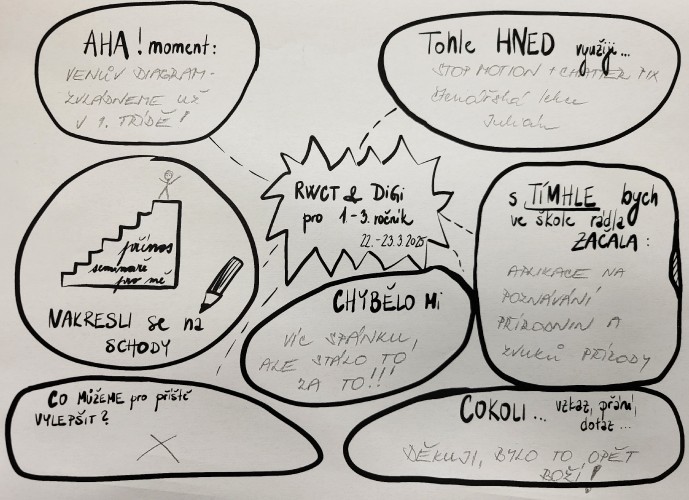 AHA! moment:
VENŮV DIAGRAM -
ZVLÁDNEME UŽ
V 1. TŘÍDĚ!
Tohle HNED využiji...
STOP MOTION + CHATTER PIX
čtenářská lekce
RWCT & DiGi
pro 1.-3. ročník
22.-23.3.2025
přínos
semináře
pro mě
NAKRESLI se na
SCHODY
s TÍMHLE bych
ve škole rád/a
ZAČALA:
APLIKACE NA
POZNÁVÁNÍ
PŘÍRODNIN A
ZVUKŮ PŘÍRODY
CHYBĚLO Mi
VÍC SPÁNKU,
ALE STÁLO TO
ZA TO!!!
CO MŮŽEME pro příště
VYLEPŠIT?
COKOLI... vzkaz, přání,
dotaz...
DĚKUJI, BYLO TO OPĚT
BOŽÍ!